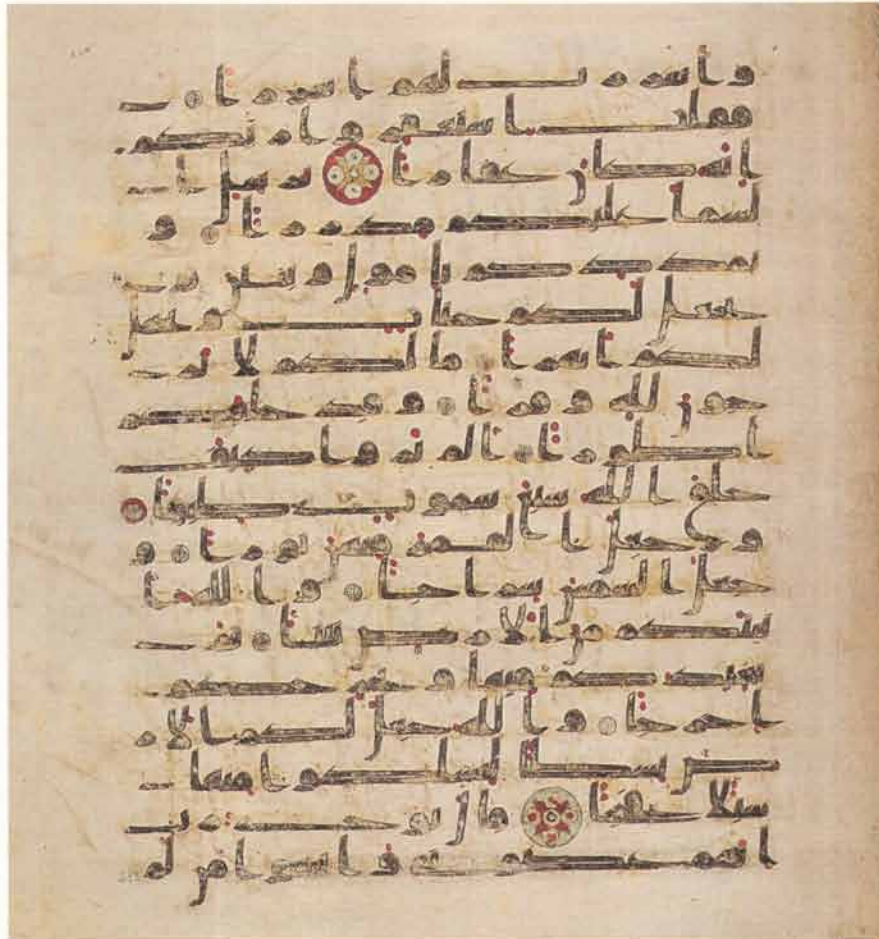 وأسررت لهم اسرارا
فقلت استغفروا ربكم
انه كان غفارا يرسل ا
لسما عليكم مدرارا و
يمددكم باموال وبنين و
يجعل لكم جنت ويجعل
لكم انهرا ما لكم لا تر
جون لله وقارا وقد خلقكم
اطوارا الم تروا كيف
خلق الله سبع سموت طباقا
وجعل القمر فيهن نورا و
جعل الشمس سراجا والله ا
نبتكم من الارض نباتا ثم
يعيدكم فيها ويخرجكم
اخراجا والله جعل لكم الار
ض بساطا لتسلكوا منها
سبلا فجاجا قال نوح رب
انهم عصوني واتبعوا من لم